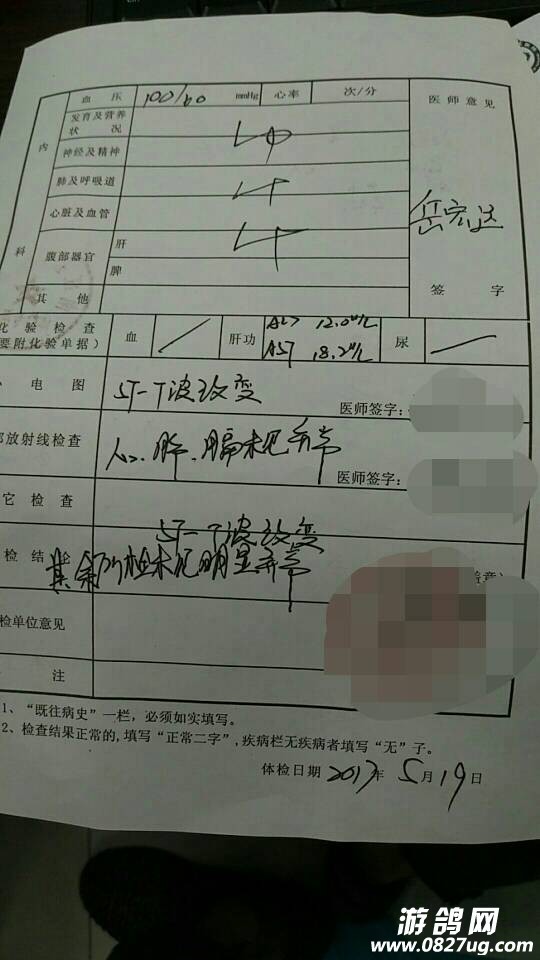 血 压 100/60 mmHg 心率 次/分 医师意见
内
科
发育及营养
状 况
神经及精神
肺及呼吸道
心脏及血管
腹部器官 肝
脾
其 他
签 字
化 验 检 查
要附化验单据) 血 肝功 ALT 12.0u/L
AST 18.2u/L 尿
电 图 ST-T波改变
医师签字:
部放射线检查 心、肺、膈未见异常
医师签字:
它 检 查
检 结 ST-T波改变
其余所检未见明显异常
检单位意见
注
1、“既往病史”一栏，必须如实填写。
2、检查结果正常的,填写“正常二字”,疾病栏无疾病者填写“无”子。
体检日期 2017年 5月19日
游鸽网
www.0827ug.com